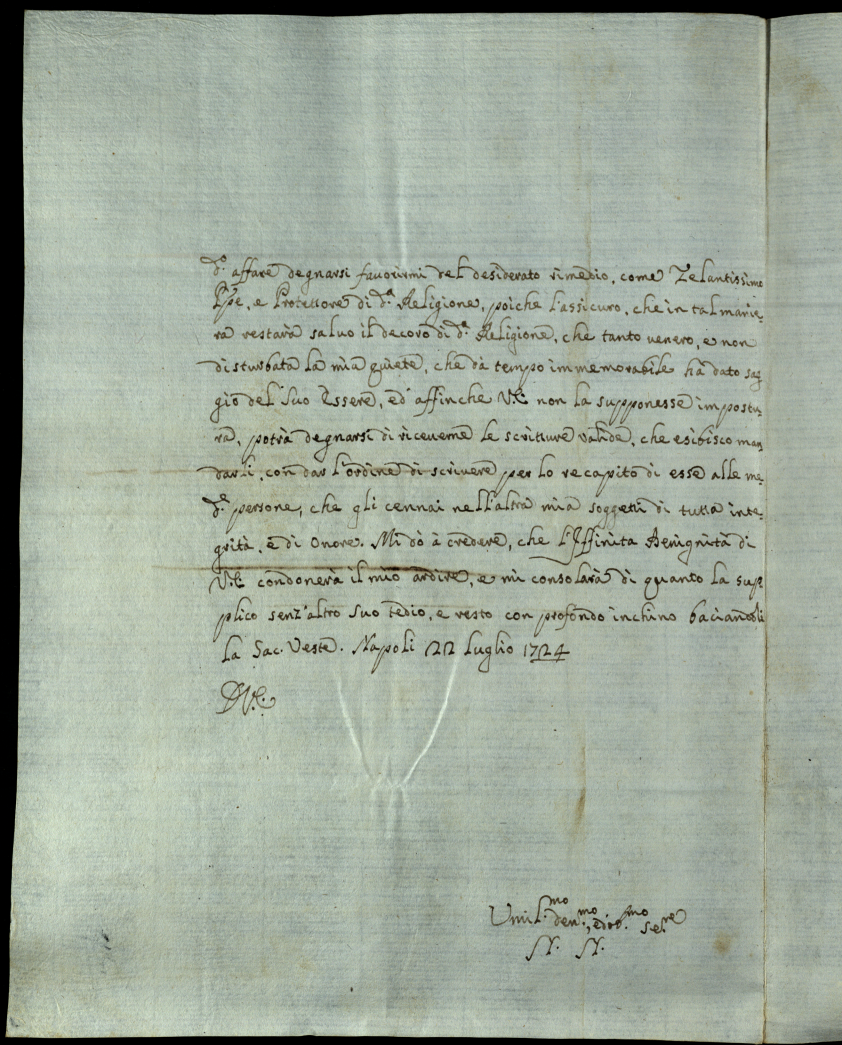 d.º affare degnarsi favorirmi del desiderato rimedio, come Zelantissimo
Ppe, e Protettore di d.ª Religione, poiche l'assicuro, che in tal manie-
ra restarà salvo il decoro di d.ª Religione, che tanto venero, e non
disturbata la mia quiete, che dà tempo immemorabile hà dato sag-
gio del Suo Essere, ed' affinche V.E. non la supponesse impostu-
ra, potrà degnarsi di riceverne le scritture valide, che esibisco man-
darli, con dar l'ordine di scrivere per lo recapito di esse alle me-
d.e persone, che gli cennai nell'altra mia soggetti di tutta inte-
grità, e di Onore. Mi dò à credere, che l'Iffinita Benignità di
V.E. condonerà il mio ardire, e mi consolarà di quanto la sup-
plico senz'altro suo tedio, e resto con profondo inchino baciandoli
la Sac. Veste. Napoli 22 Luglio 1724
D.V.E.
Umil.mo dev.mo, ed ob.mo se.re
N. N.